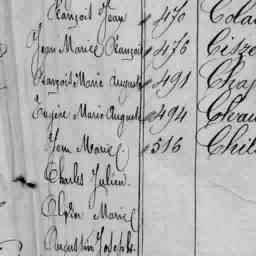 François Jean 470 Cola
Jean Marie François 476
François Marie Auguste 491 Chap
Eugène Marie Auguste 494 Chau
Jean Marie 516 Chil
Charles Julien
Marie
Augustin Joseph